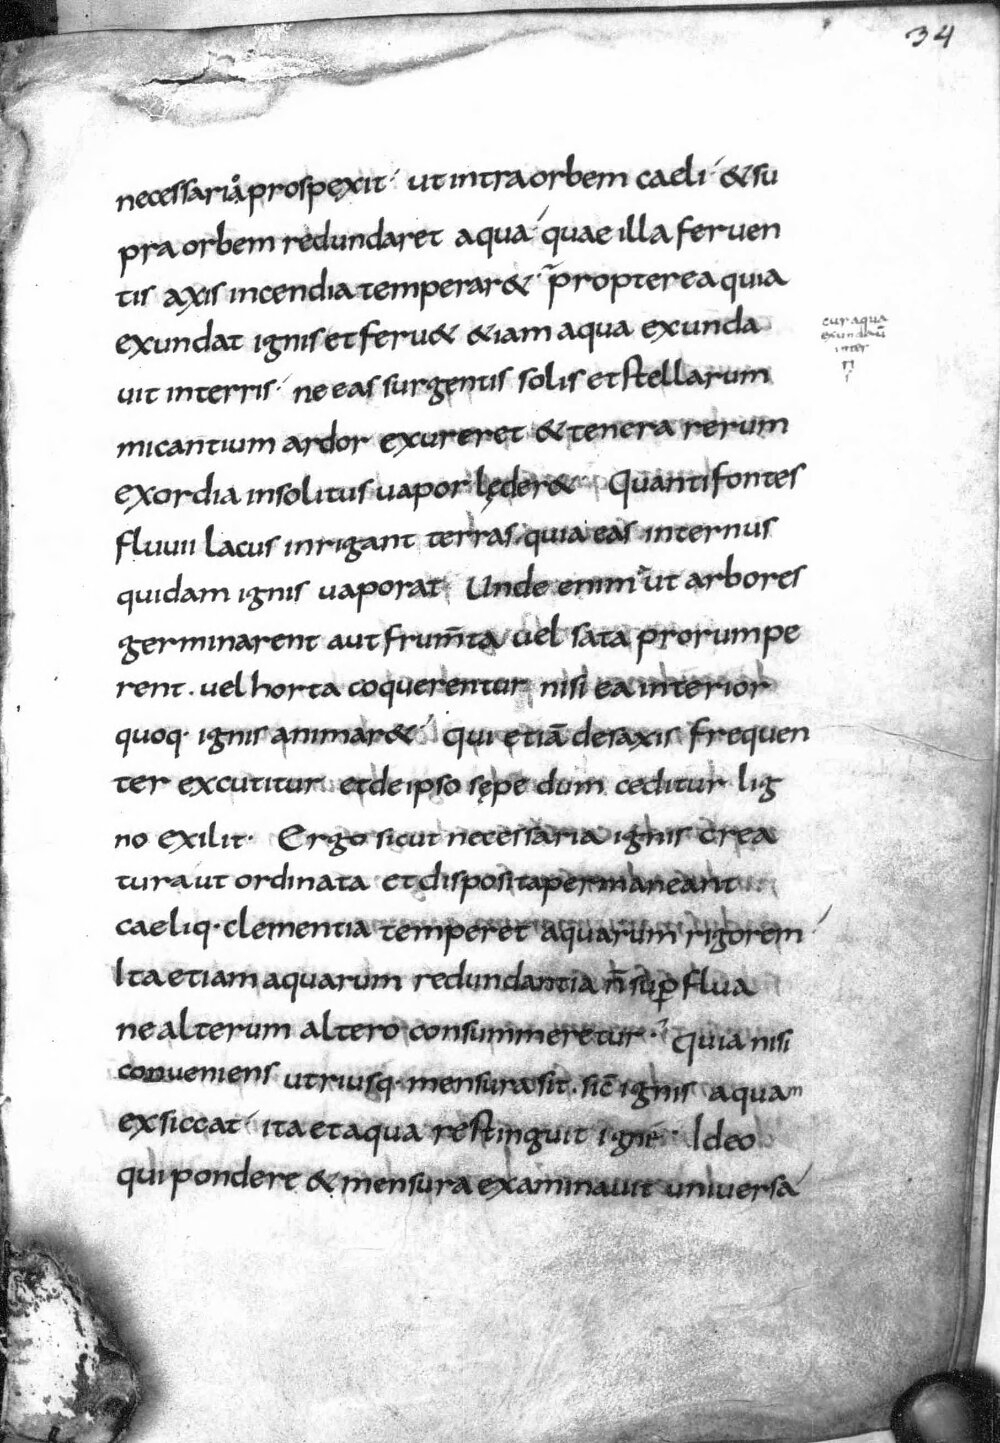 34
necessaria prospexit· ut intra orbem caeli· & su
pra orbem redundaret aqua· quae illa feruen
tis axis incendia temperar&· propterea quia
exundat ignis et feru& &iam aqua exunda
cur aqua
exundauit
inter
uit interris· ne eas surgentis solis et stellarum
micantium ardor exureret & tenera rerum
exordia insolitus uapor lęder&· Quanti fontes
fluuii lacus inrigant terras· quia eas internus
quidam ignis uaporat· Unde enim ut arbores
germinarent aut frum̄ta uel sata prorumpe
rent· uel horta coquerentur nisi ea interior
quoq· ignis animar&· qui etiā desaxis frequen
ter excutitur et de ipso sępe dum ceditur lig
no exilit· Ergo sicut necessaria ignis crea
tura ut ordinata et disposita permaneant
caeliq· clementia temperet aquarum rigorem·
Ita etiam aquarum redundantia n̄ sup̄flua
ne alterum altero consummeretur· Quia nisi
conueniens utriusq· mensura sit· sic̄ ignis aquam
exsiccat· ita et aqua restinguit ignē· Ideo
qui pondere & mensura examinauit uniuersa